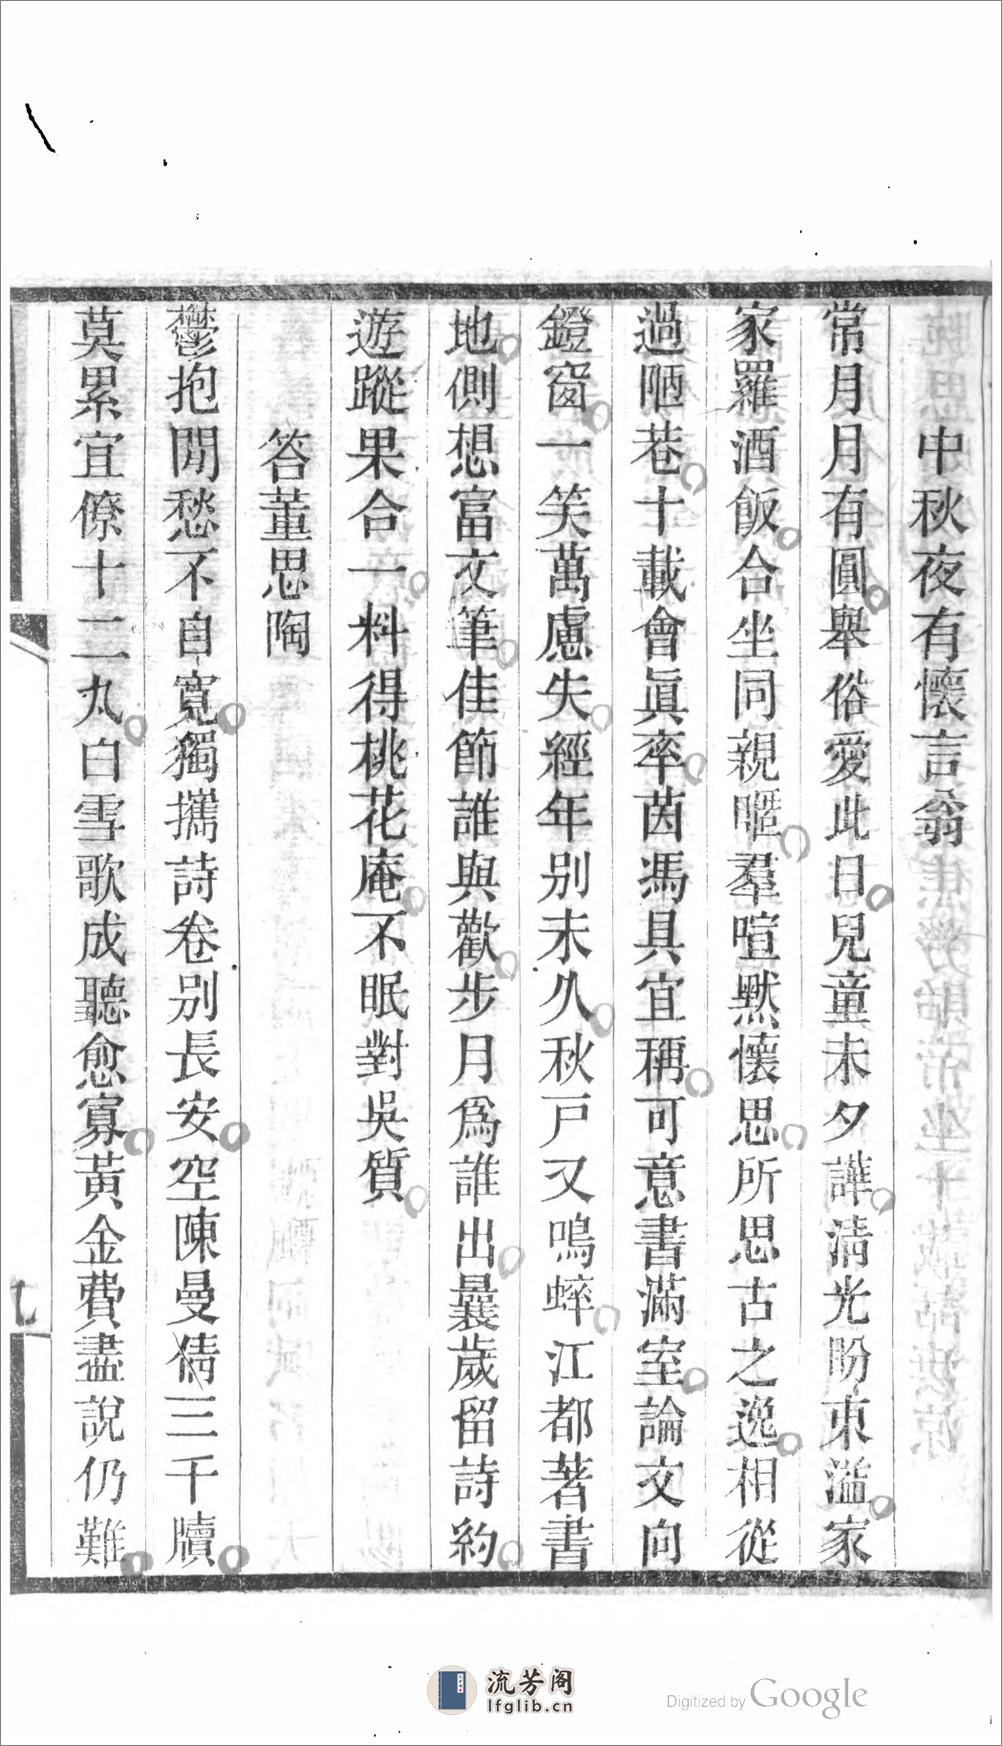 中秋夜有懷言翁
常月月有圓舉俗愛此日兒童未夕譁清光盼東溢家
家羅酒飯合坐同親暱羣喧默懷思所思古之逸相從
過陋巷十載會眞率茵馮具宜稱可意書滿室論文向
鐙窗一笑萬慮失經年别未久秋戸又鳴蟀江都著書
地側想富文筆佳節誰與歡步月爲誰出曩歲留詩約
遊蹤果合一料得桃花庵不眠對吳質
答董思陶
鬱抱閒愁不自寬獨攜詩卷别長安空陳曼倩三千牘
莫累宜僚十二丸白雪歌成聽愈寡黃金費盡說仍難
流芳阁
lfglib.cn
Digitized by Google